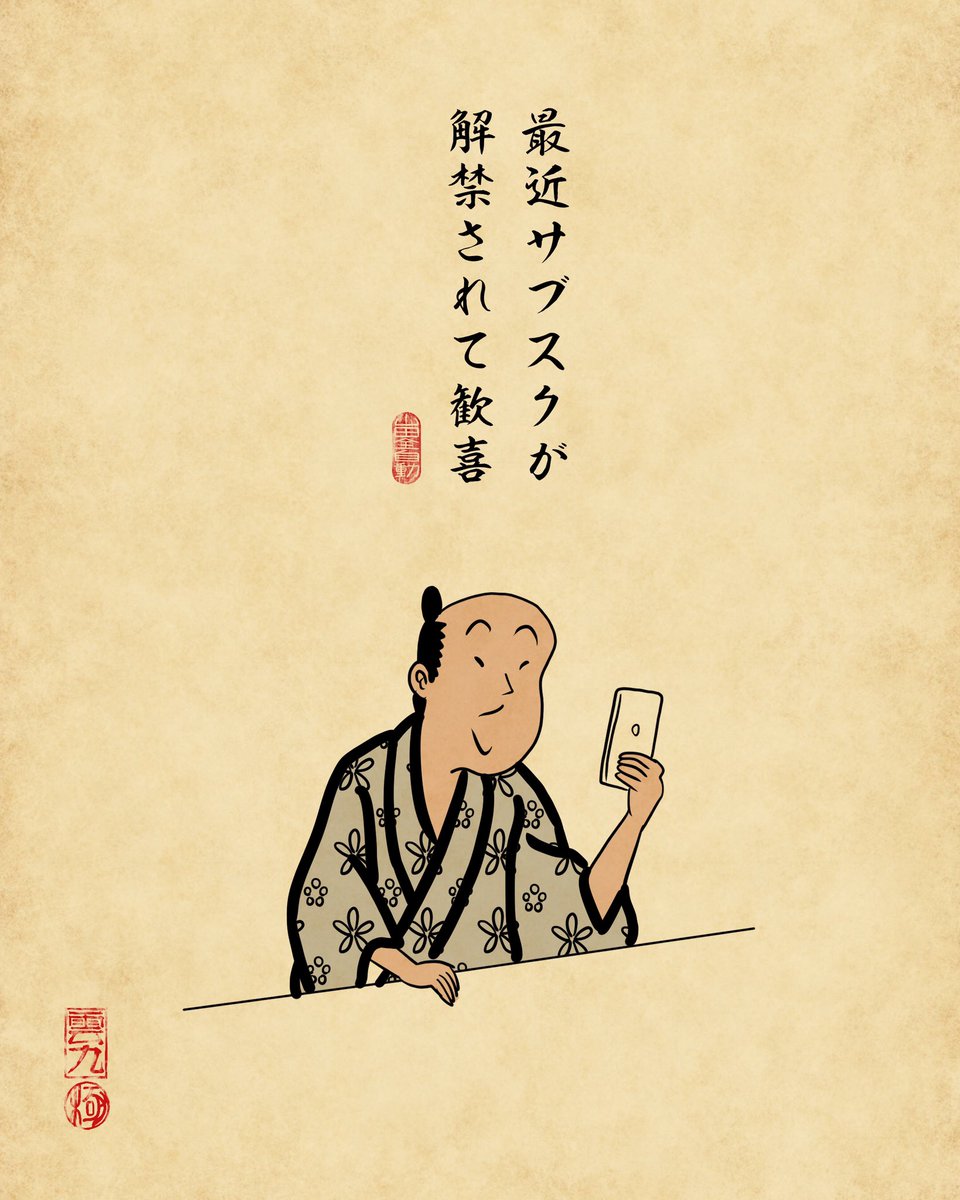 最近サブスクが
解禁されて歓喜